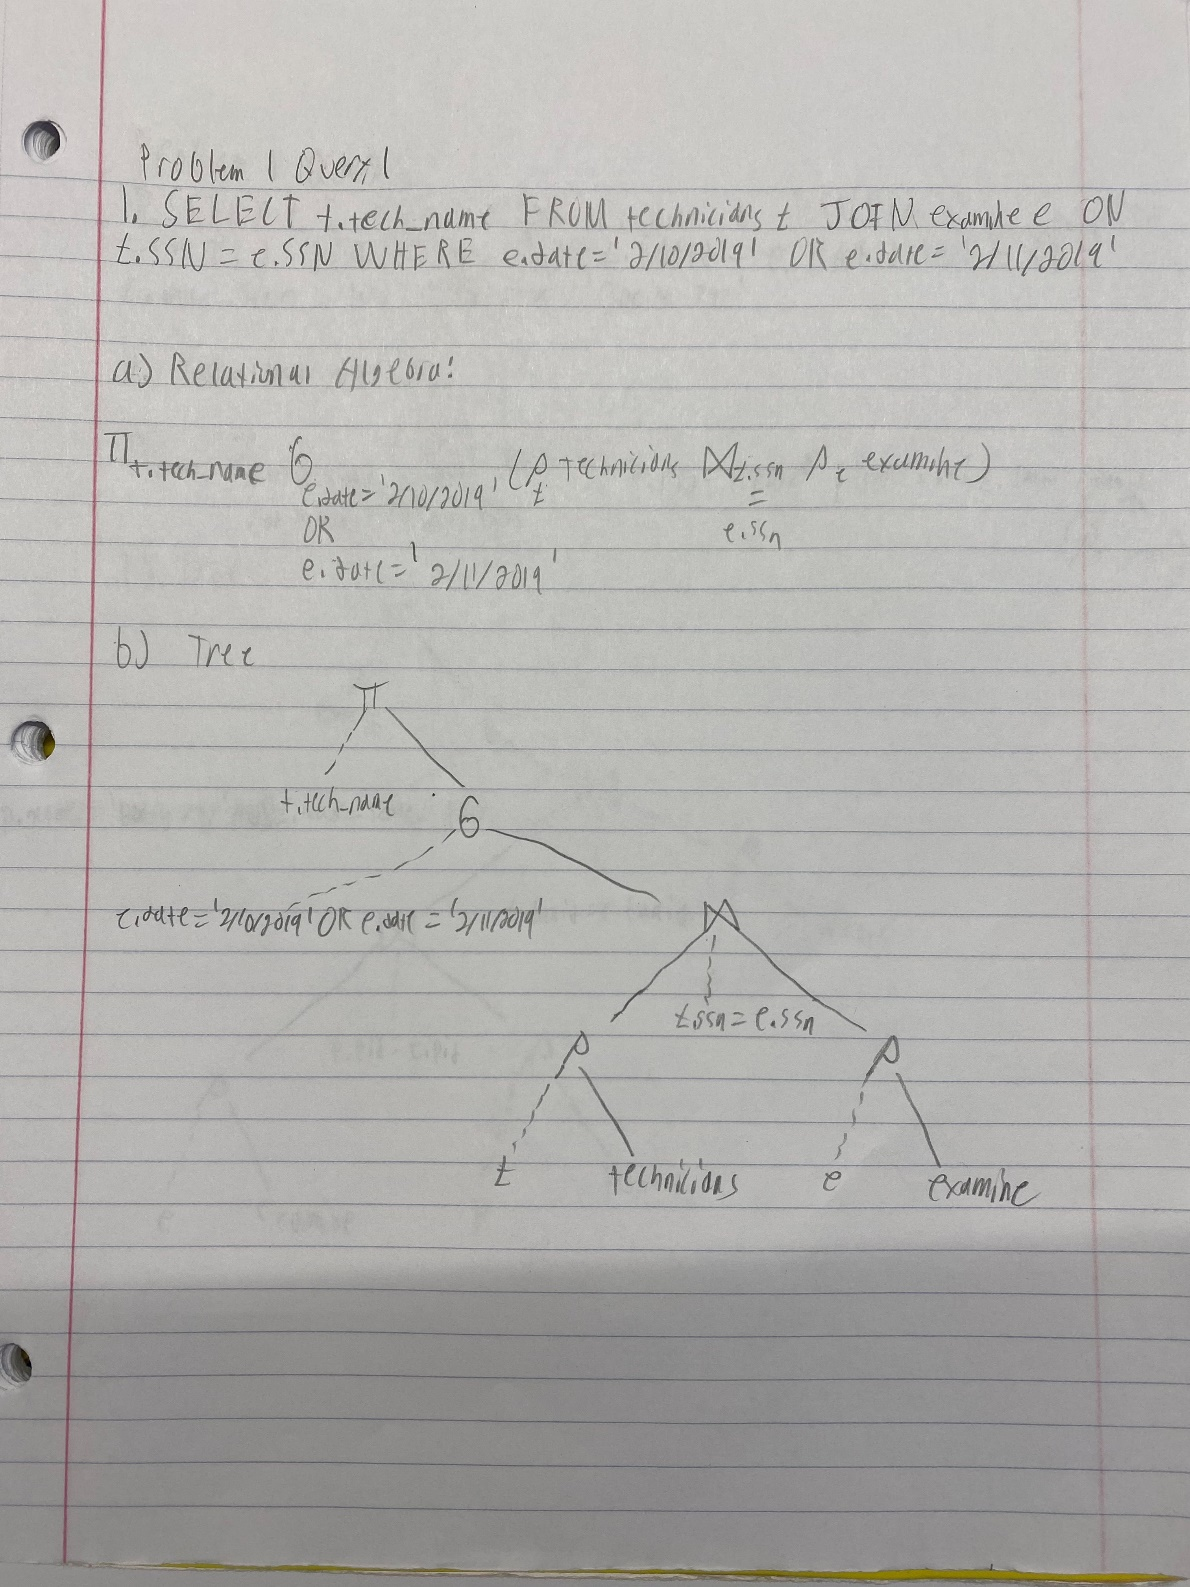 Problem 1 Query 1
1. SELECT t.tech_name FROM technicians t JOIN examine e ON
t.SSN = e.SSN WHERE e.date='2/10/2019' OR e.date='2/11/2019'
a) Relational Algebra:
Π t.tech_name σ e.date='2/10/2019' (ρ t technicians ⋈ t.ssn ρ e examine)
OR
=
e.ssn
e.date='2/11/2019'
b) Tree
Π
t.tech_name
σ
e.date='2/10/2019' OR e.date='2/11/2019'
⋈
t.ssn=e.ssn
ρ ρ
t technicians e examine